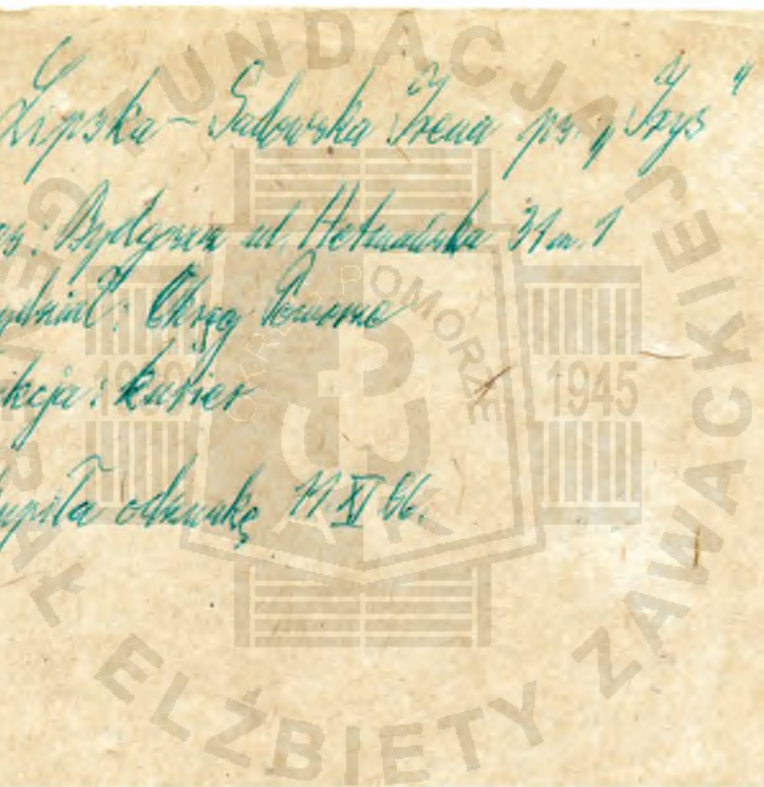 Lipska - Sadowska Irena ps. „Irys"
es: Bydgoszcz ul. Hetmańska 31 m. 1
ydział: Okręg Pomorze
kcja: kurier
upiła odznakę 11 XI 66.
FUNDACJA
ELŻBIETY ZAWACKIEJ
OKRĘG POMORZE
AK
1939
1945